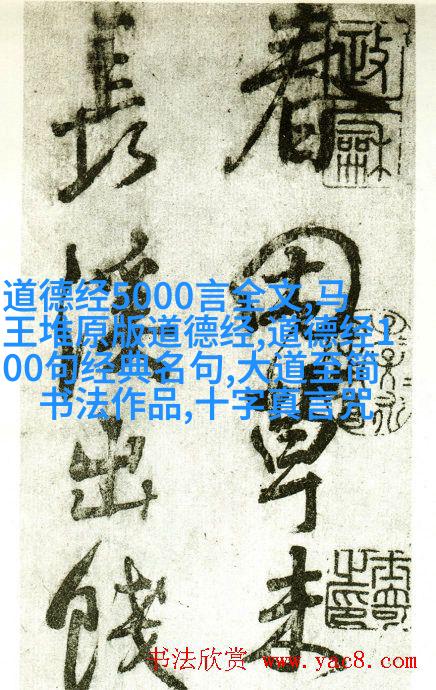 田草未
長 出餞
政龢
道德经5000言全文,马
王堆原版道德经,道德经1
00句经典名句,大道至简
书法作品,十字真言咒
书法欣赏 www.yac8.com